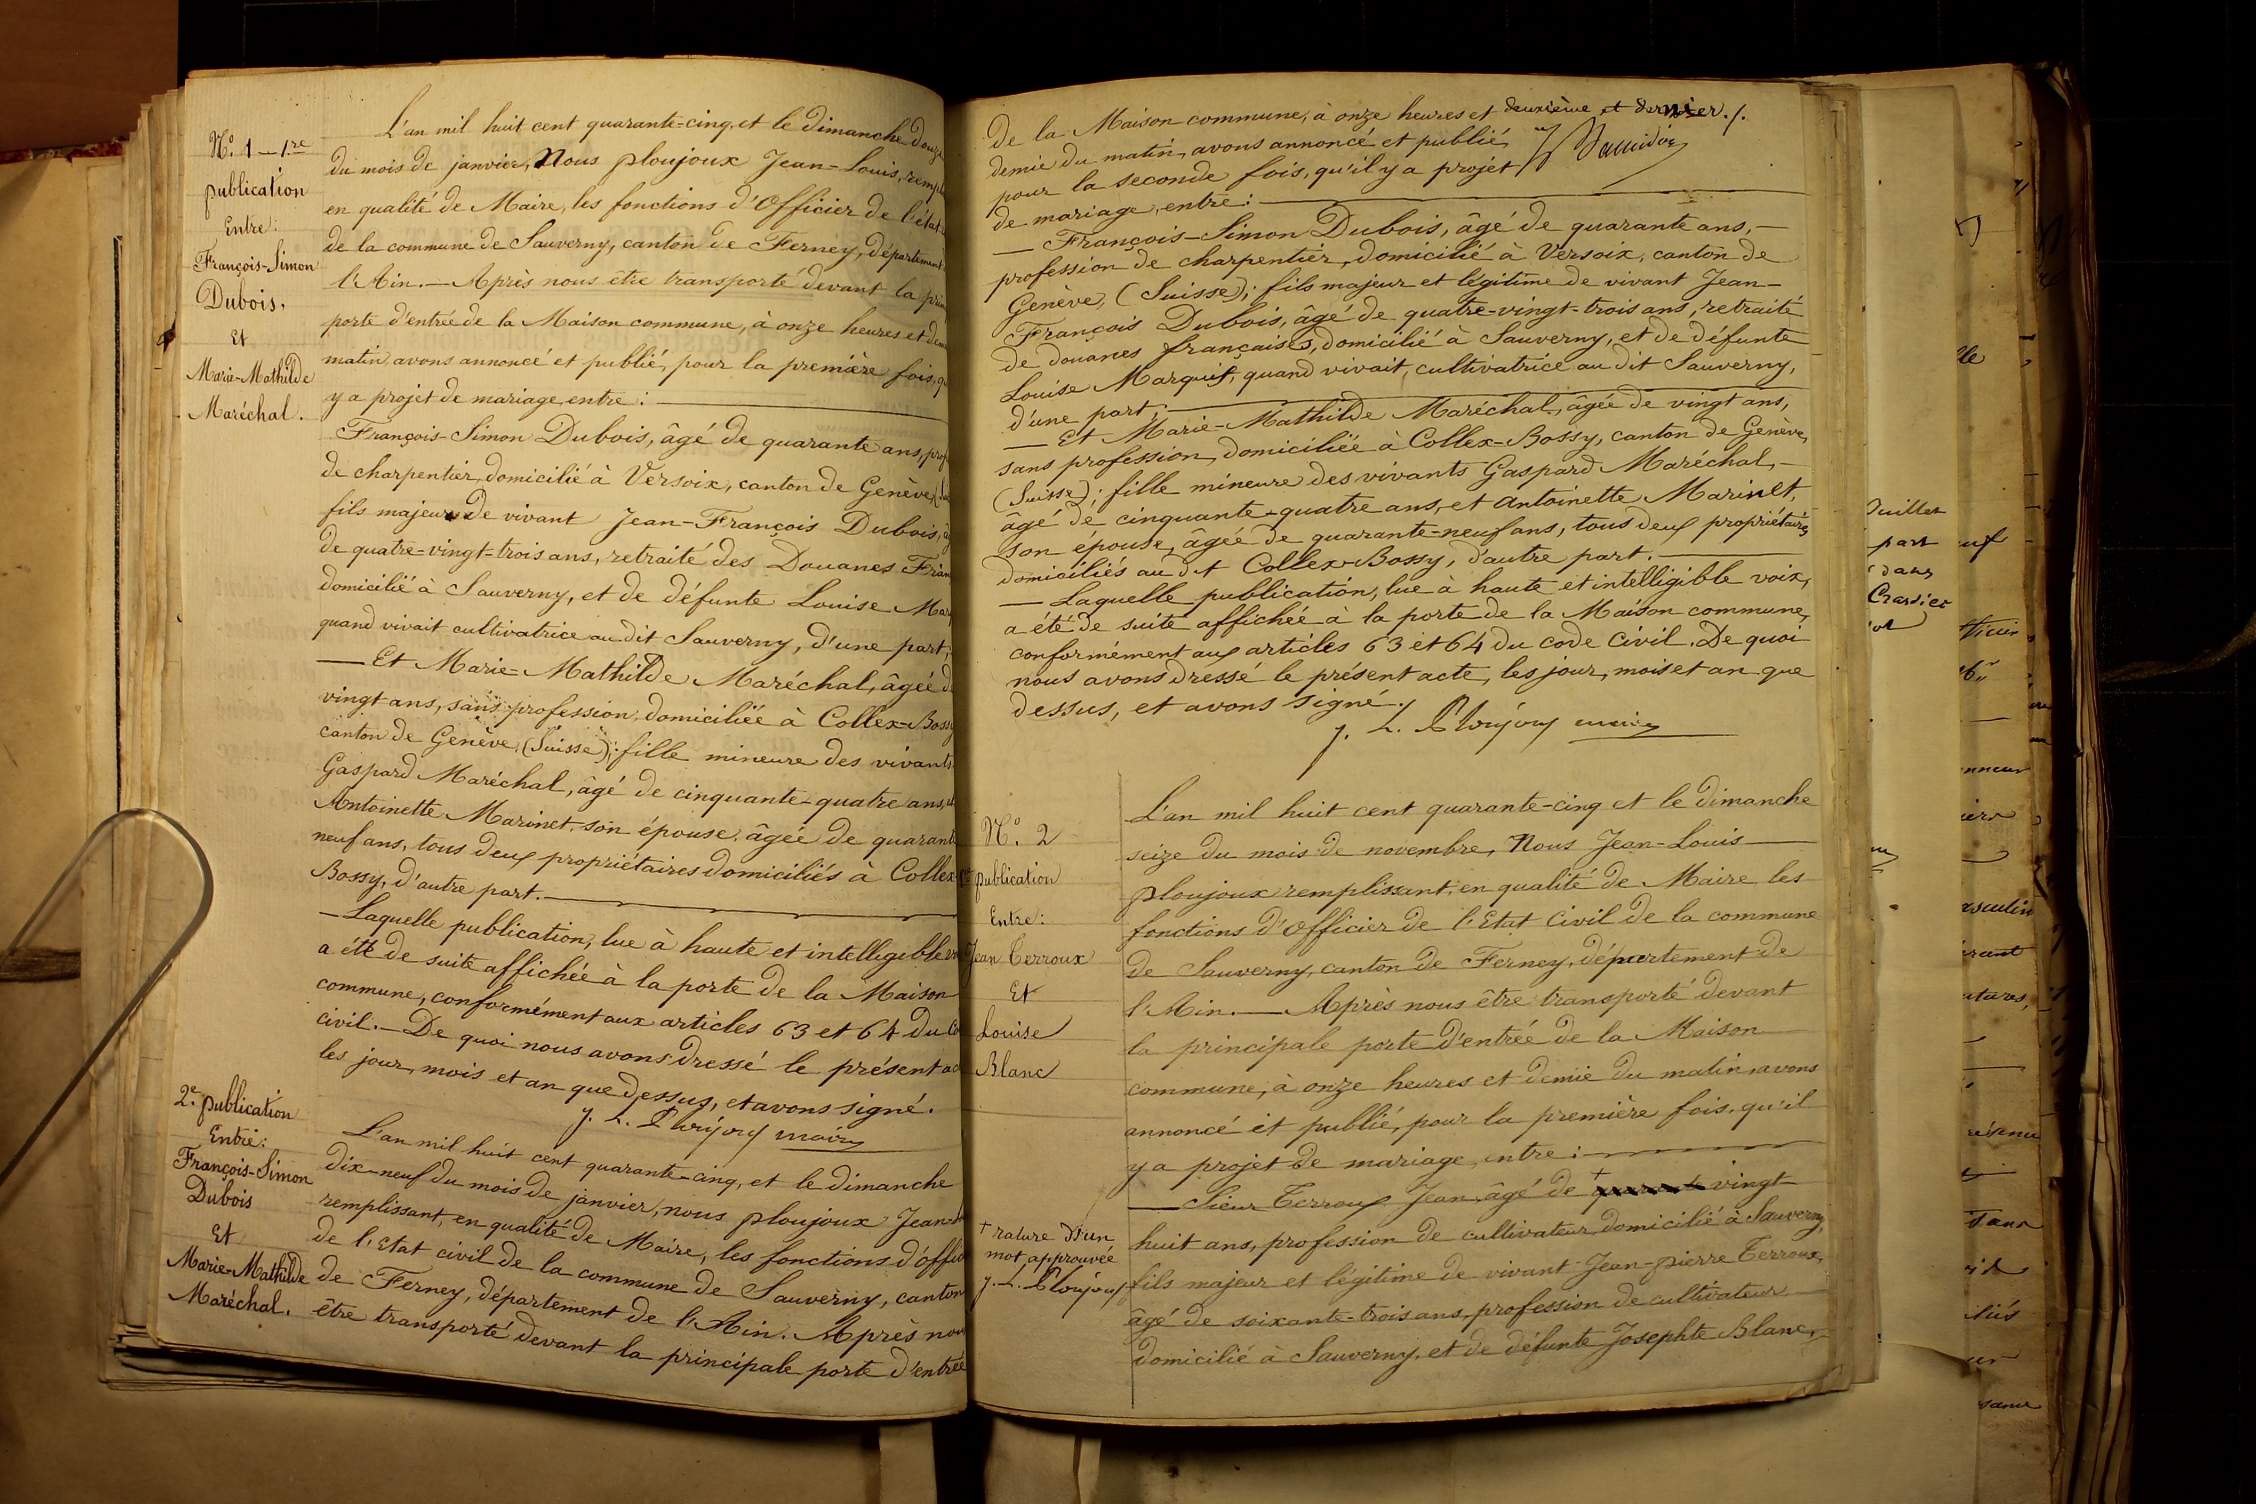 N.o 1 — 1.re
publication
Entre:
François-Simon
Dubois,
Et
Marie-Mathilde
Maréchal.
L'an mil huit cent quarante-cinq, et le dimanche douze
du mois de janvier, Nous ploujoux Jean-Louis, remp
en qualité de Maire, les fonctions d'Officier de l'état
de la commune de Sauverny, canton de Ferney, département
l'Ain. — Après nous être transporté devant la prin
porte d'entrée de la Maison commune, à onze heures et dem
matin, avons annoncé et publié, pour la première fois, qu
y a projet de mariage, entre :
François-Simon Dubois, âgé de quarante ans, prof
de charpentier, domicilié à Versoix, canton de Genève, (Sui
fils majeur de vivant Jean-François Dubois, âg
de quatre-vingt-trois ans, retraité des Douanes Fran
domicilié à Sauverny, et de défunte Louise Mar
quand vivait cultivatrice au dit Sauverny, d'une part ;
— Et Marie-Mathilde Maréchal, âgée de
vingt ans, sans profession, domiciliée à Collex-Bossy
canton de Genève, (Suisse); fille mineure des vivants
Gaspard Maréchal, âgé de cinquante-quatre ans, et
Antoinette Marinet, son épouse, âgée de quarante
neuf ans, tous deux propriétaires domiciliés à Collex-
Bossy, d'autre part.
— Laquelle publication, lue à haute et intelligible vo
a été de suite affichée à la porte de la Maison
commune, conformément aux articles 63 et 64 du Co
civil. — De quoi nous avons dressé le présent ac
les jour, mois et an que dessus, et avons signé.
J. L. Ploujoux maire
2.e publication
Entre:
François-Simon
Dubois
Et
Marie-Mathilde
Maréchal.
L'an mil huit cent quarante-cinq, et le dimanche
dix-neuf du mois de janvier, nous ploujoux Jean-
remplissant, en qualité de Maire, les fonctions d'offic
de l'Etat civil de la commune de Sauverny, canton
de Ferney, département de l'Ain. Après nou
être transporté devant la principale porte d'entrée
De la Maison commune, à onze heures et
demie du matin, avons annoncé et publié,
pour la seconde fois, qu'il y a projet
de mariage, entre :
deuxième et dernier. /.
— François-Simon Dubois, âgé de quarante ans, —
profession de charpentier, domicilié à Versoix, canton de
Genève, (Suisse); fils majeur et légitime de vivant Jean-
François Dubois, âgé de quatre-vingt-trois ans, retraité
de douanes françaises, domicilié à Sauverny, et de défunte
Louise Marquis, quand vivait, cultivatrice au dit Sauverny,
d'une part ;
— Et Marie-Mathilde Maréchal, âgée de vingt ans,
sans profession, domiciliée à Collex-Bossy, canton de Genève,
(Suisse); fille mineure des vivants Gaspard Maréchal, —
âgé de cinquante-quatre ans, et Antoinette Marinet,
son épouse, agée de quarante-neuf ans, tous deux propriétaires,
domiciliés au dit Collex-Bossy, d'autre part.
— Laquelle publication, lue à haute et intelligible voix,
a été de suite affichée à la porte de la Maison commune,
conformément aux articles 63 et 64 du code Civil. De quoi
nous avons dressé le présent acte, les jour, mois et an que
dessus, et avons signé.
J. L. Ploujoux maire
N.o 2
publication
Entre:
Jean Terroux
Et
Louise
Blanc
L'an mil huit cent quarante-cinq et le dimanche
seize du mois de novembre, Nous Jean-Louis
ploujoux remplissant, en qualité de Maire, les
fonctions d'Officier de l'Etat Civil de la commune
de Sauverny, canton de Ferney, département de
l'Ain. — Après nous être transporté devant
la principale porte d'entrée de la Maison
commune, à onze heures et demie du matin, avons
annoncé et publié, pour la première fois, qu'il
y a projet de mariage, entre :
— Sieur Terroux Jean, âgé de + vingt
huit ans, profession de cultivateur, domicilié à Sauverny,
fils majeur et légitime de vivant Jean-pierre Terroux,
âgé de soixante-trois ans, profession de cultivateur
domicilié à Sauverny, et de défunte Josephte Blanc,
+ rature d'un
mot, approuvée
J. L. Ploujoux
Juillet
part
dans